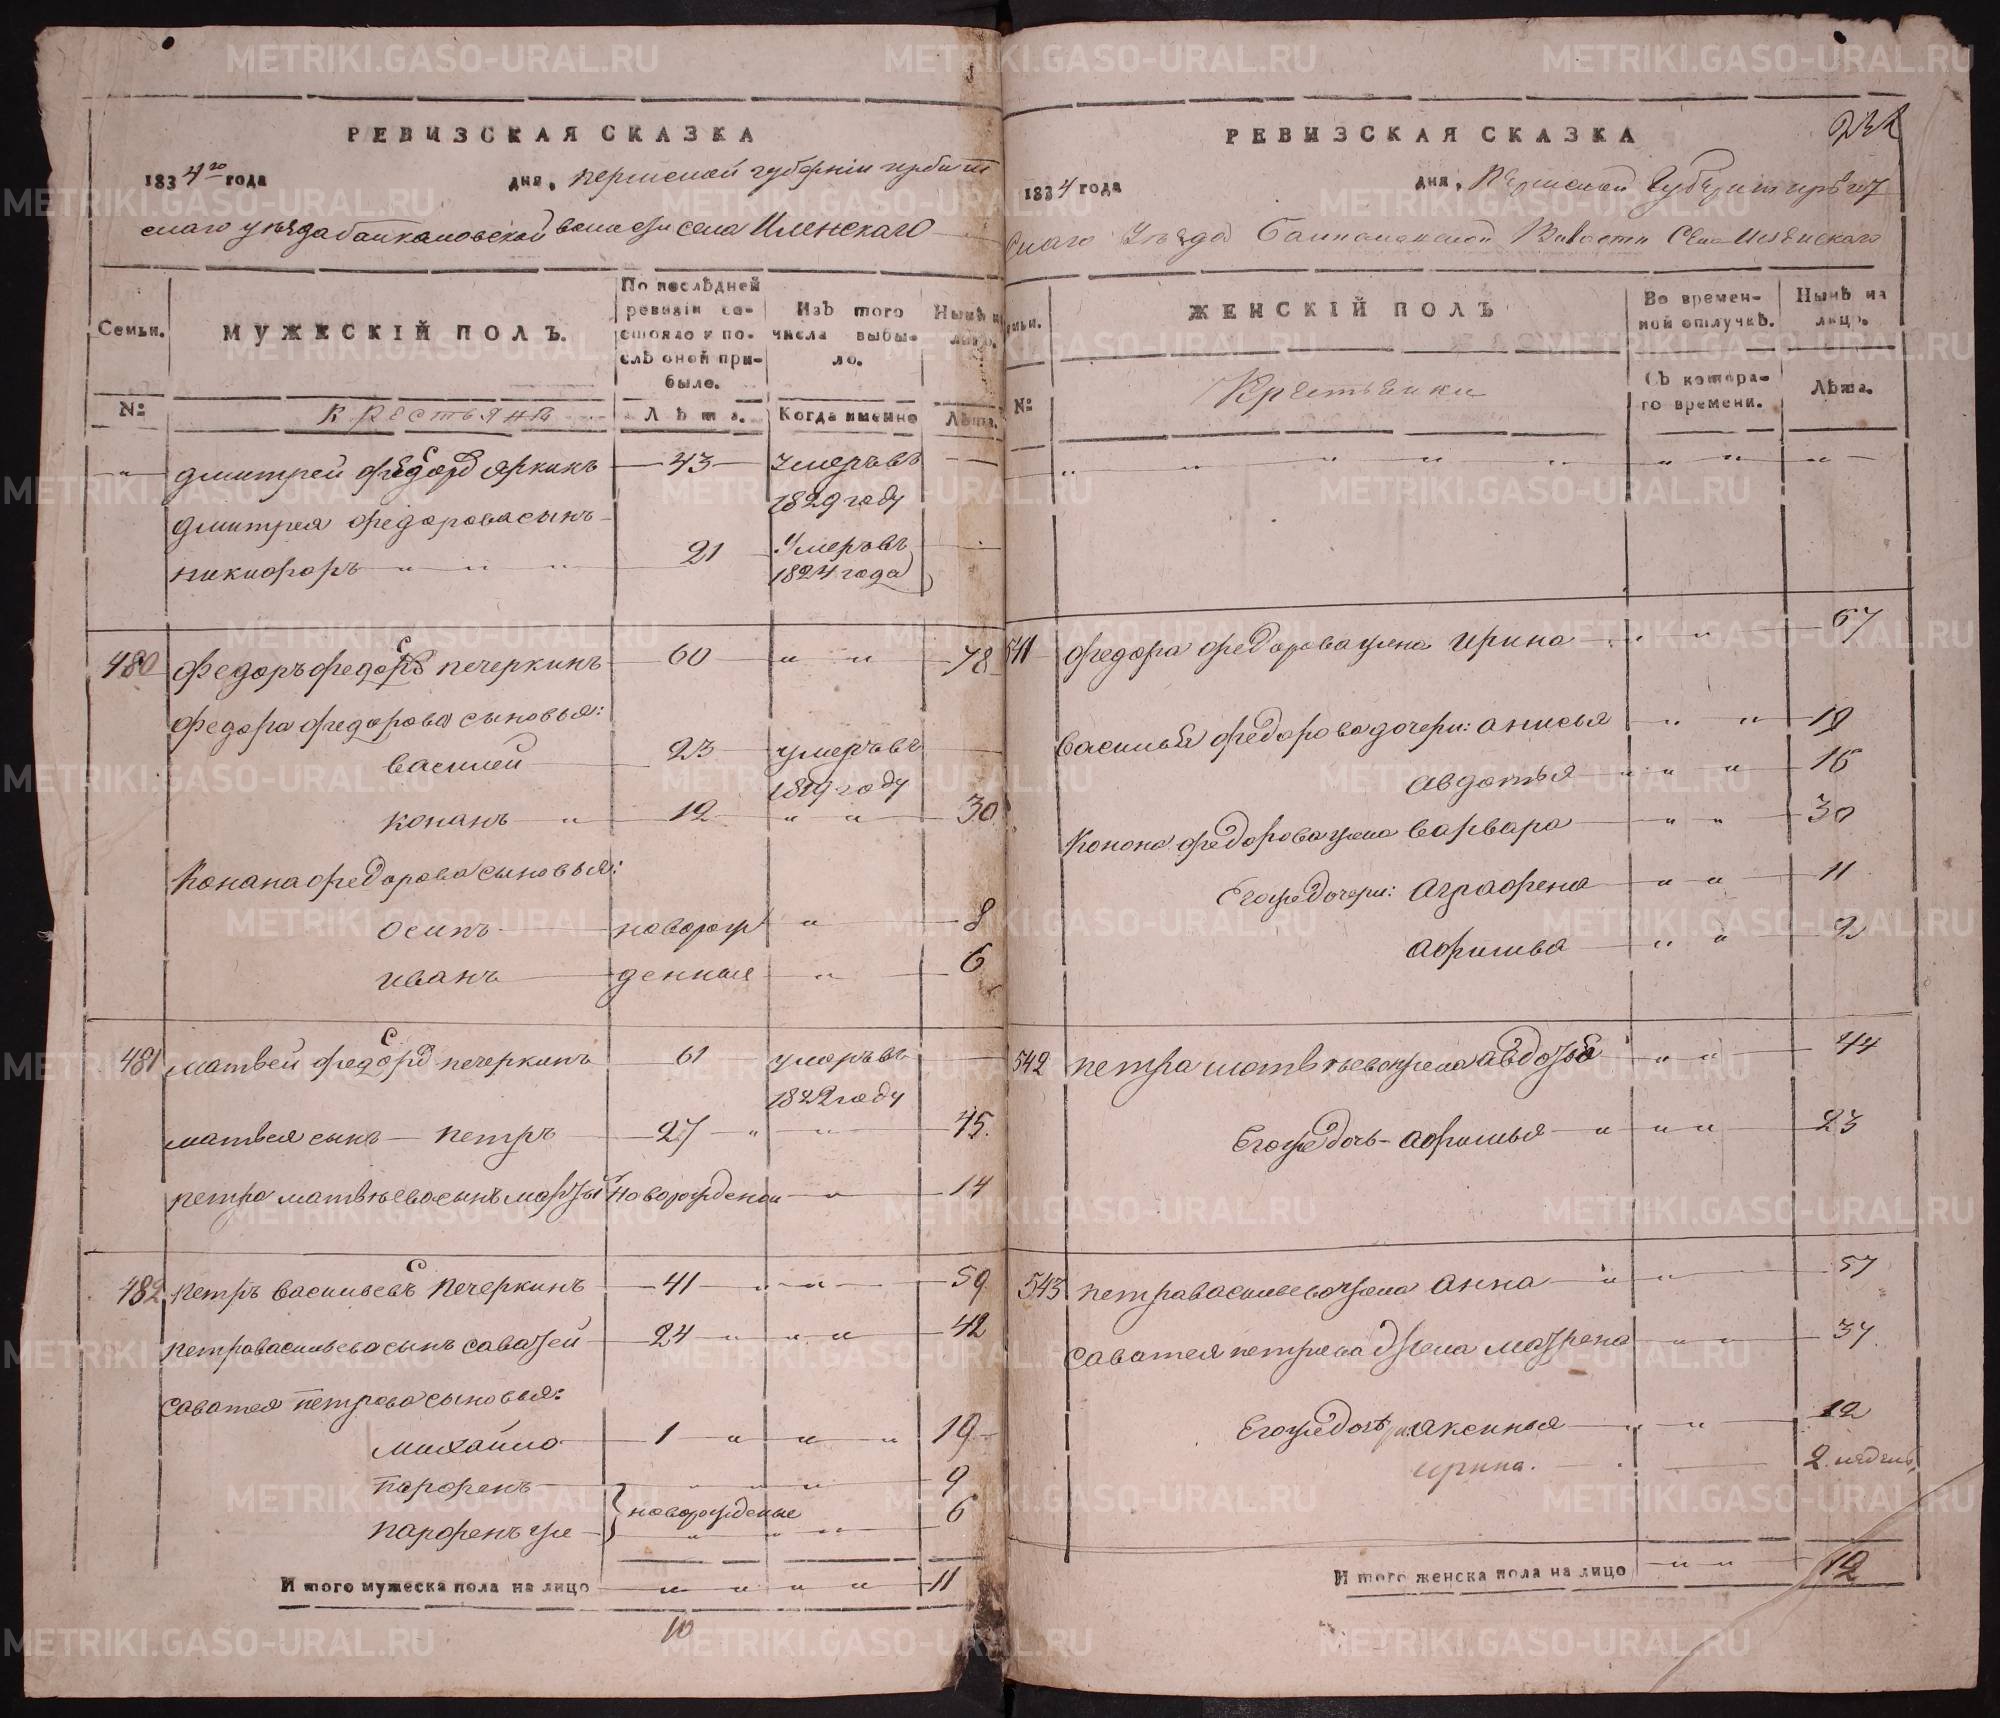 РЕВИЗСКАЯ СКАЗКА
1834го года дня, Пермской губернїи ирбит
скаго уѣзда байкаловской волости села Иленскаго
Семьи.
МУЖЕСКІЙ ПОЛЪ.
По послѣдней ревизіи состояло и послѣ оной прибыло.
Изъ того числа выбыло.
Нынѣ на лицо.
№
крестьянѣ
Лѣта.
Когда именно
Лѣта.
дмитрей федоровъ яркинъ 43 умеръ въ
1829 году
дмитрея федорова сынъ
никифоръ " " " 21 умеръ въ
1824 года
480 федоръ федоровъ С печеркинъ 60 " " 78
федора федорова сыновья:
василей 23 умеръ въ
1819 году
конанъ " 12 " " 30
Конана федорова сыновья:
осипъ новорож " 8
иванъ денныя " 6
481 матвей федоровъ С печеркинъ 61 умеръ въ
1822 году
матвея сынъ петръ 27 " " 45
петра матвѣева сынъ новорожденой " 14
482 петръ васильевъ С печеркинъ 41 " " 59
петра васильева сынъ саватей 24 " " " 42
саватея петрова сыновья:
михайло 1 " " " 19
парфенъ " " " 9
новорожденые
парфенъ же " " " 6
И того мужеска пола на лицо " " " " 11
10
РЕВИЗСКАЯ СКАЗКА
1834 года дня, Пермской Губернии
скаго Уѣзда Волости Села Иленскаго
ЖЕНСКІЙ ПОЛЪ
Во временной отлучкѣ.
Нынѣ на лицо.
№
Крестьянки
Съ котораго времени.
Лѣта.
" " " " " " " "
541 федора федорова жена ирина " " 67
василья федорова дочери: анисья " " 19
авдотья " " " 16
Конона федорова жена варвара " " 30
Егоже дочери: аграфена " " 11
афимья " " 2
542 петра матвѣева жена авдотья " " 44
Егоже дочь афимья " " " 23
543 петра васильева жена анна " " 57
саватея петрова жена матрена " " 37
Егоже дочь аксинья " " 12
ирина. 2 недели
И того женска пола на лицо " " 12